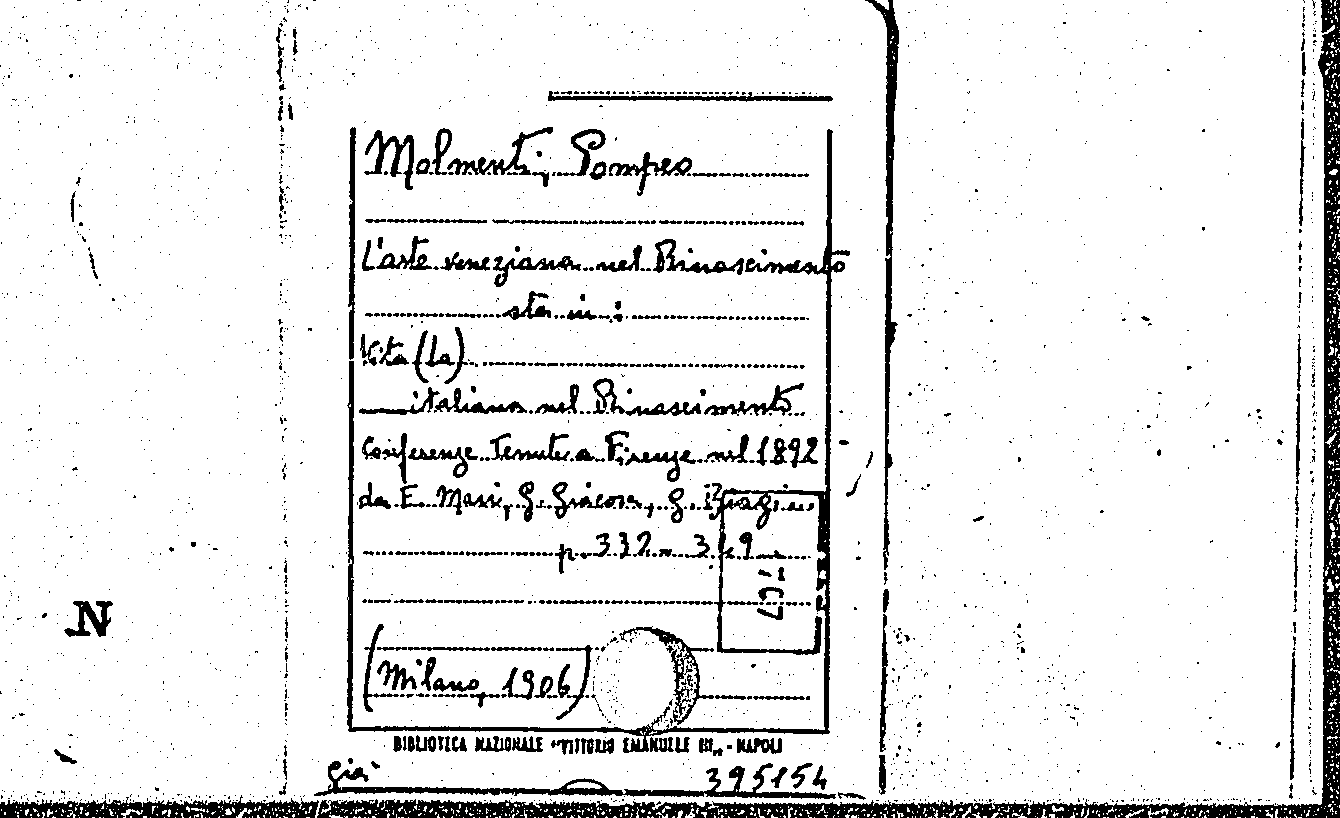 Molmenti, Pompeo
L'arte veneziana nel Rinascimento
sta in:
Vita (La)
italiana nel Rinascimento
Conferenze tenute a Firenze nel 1892
da E. Masi, G. Giacosa, G. Biagi...
p. 332-349
(Milano, 1906)
N
BIBLIOTECA NAZIONALE "VITTORIO EMANUELE III" - NAPOLI
già 395154